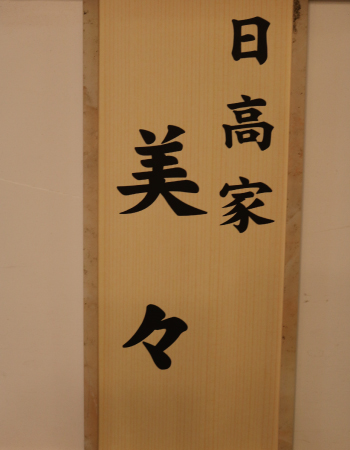 日高家
美々